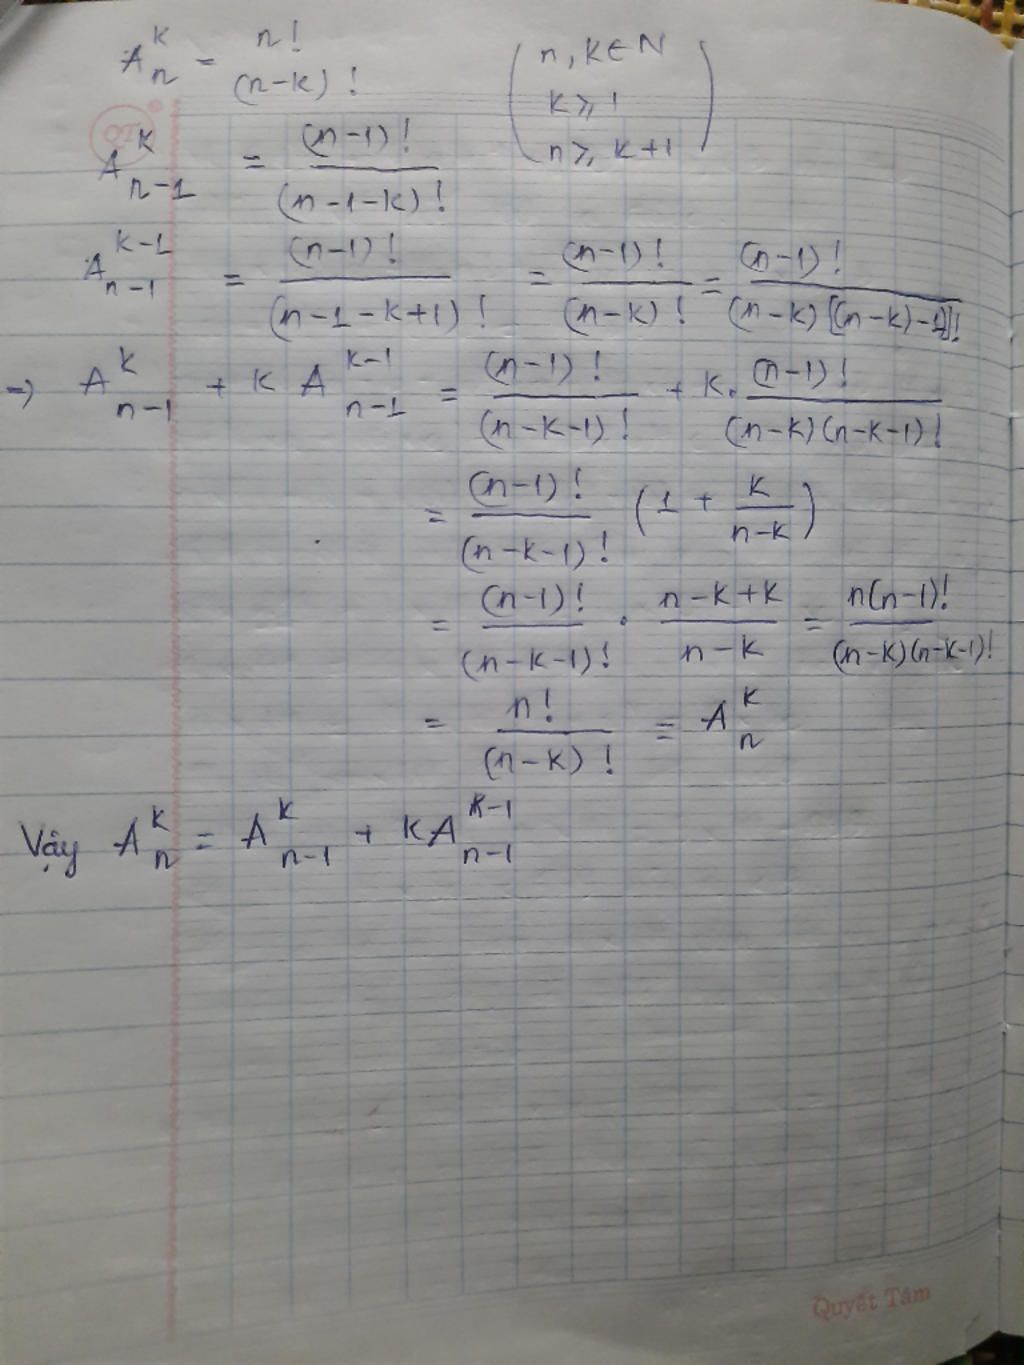 A_n^k = n! / (n-k)! ( n, k ∈ N
k ≥ 1
n ≥ k+1 )
A_{n-1}^k = (n-1)! / (n-1-k)!
A_{n-1}^{k-1} = (n-1)! / (n-1-k+1)! = (n-1)! / (n-k)! = (n-1)! / (n-k)[(n-k)-1]!
=> A_{n-1}^k + k A_{n-1}^{k-1} = (n-1)! / (n-k-1)! + k. (n-1)! / (n-k)(n-k-1)!
= (n-1)! / (n-k-1)! (1 + k / n-k)
= (n-1)! / (n-k-1)! . n-k+k / n-k = n(n-1)! / (n-k)(n-k-1)!
= n! / (n-k)! = A_n^k
Vậy A_n^k = A_{n-1}^k + kA_{n-1}^{k-1}
Quyết Tâm